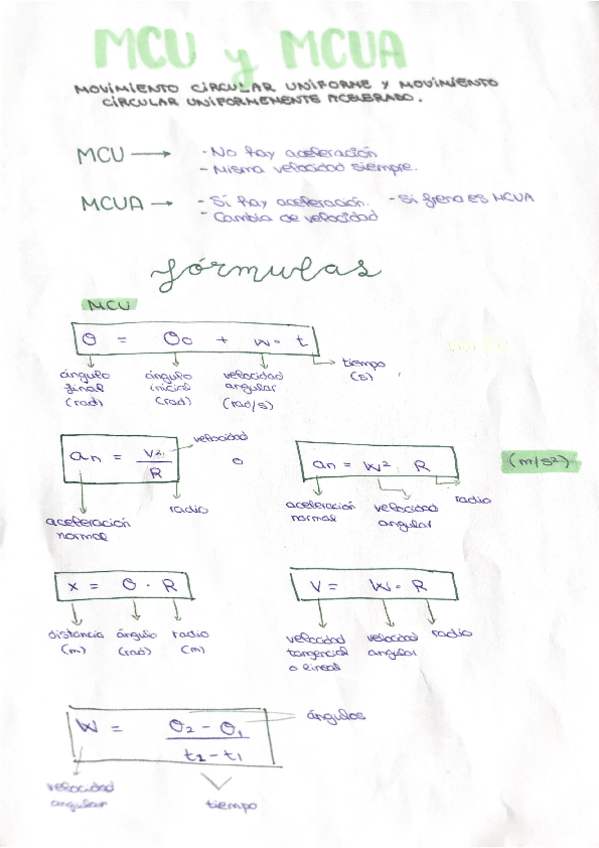 MCU y MCUA
MOVIMIENTO CIRCULAR UNIFORME Y MOVIMIENTO
CIRCULAR UNIFORMEMENTE ACELERADO.
MCU → - No hay aceleración
- Misma velocidad siempre.
MCUA → - Sí hay aceleración. - Si frena es MCUA
- Cambia de velocidad
fórmulas
MCU
θ = θ₀ + w · t
ángulo final (rad)
ángulo inicial (rad)
velocidad angular (rad/s)
tiempo (s)
an = v² / R
velocidad
radio
aceleración normal
o
an = w² · R
(m/s²)
aceleración normal
velocidad angular
radio
x = θ · R
distancia (m)
ángulo (rad)
radio (m)
v = w · R
velocidad tangencial o lineal
velocidad angular
radio
w = θ₂ - θ₁ / t₂ - t₁
ángulos
velocidad angular
tiempo